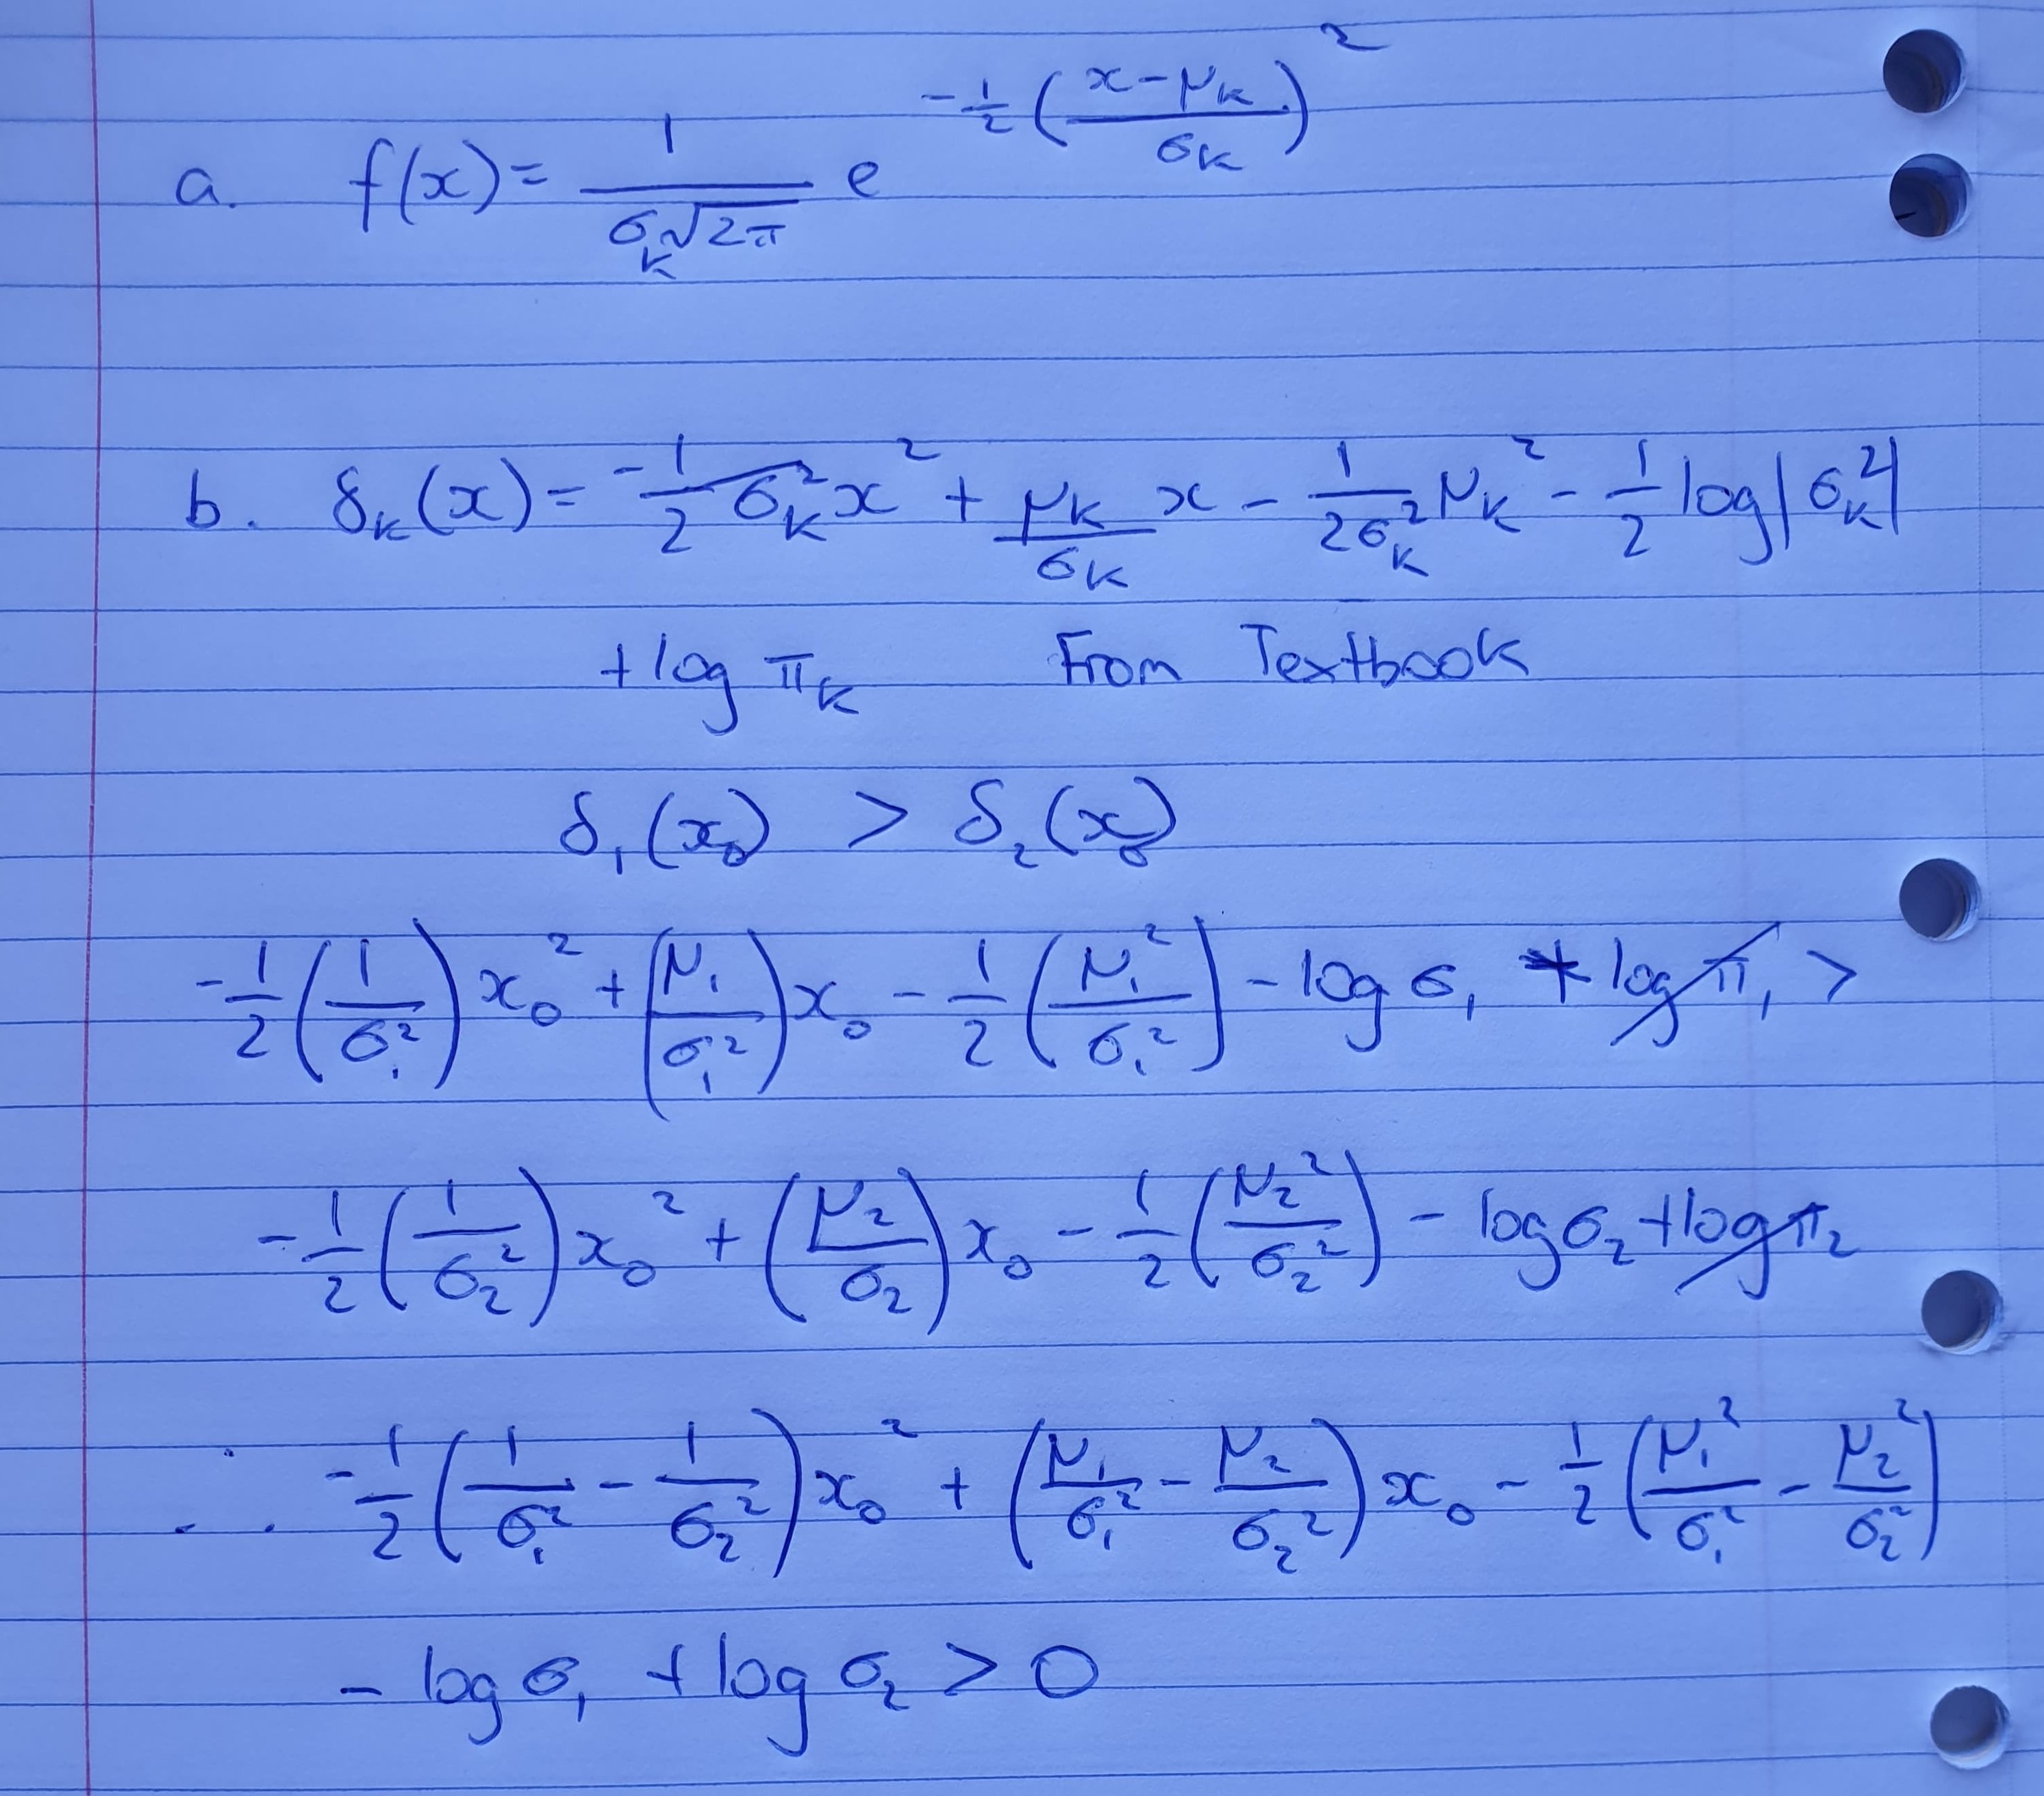 a. f(x) = 1/(σₖ√2π) e^(-1/2 ((x-μₖ)/σₖ)²)
b. δₖ(x) = -1/(2σₖ²) x² + μₖ/σₖ x - 1/(2σₖ²) μₖ² - 1/2 log|σₖ²|
+ log πₖ From Textbook
δ₁(x₀) > δ₂(x₀)
-1/2 (1/σ₁²) x₀² + (μ₁/σ₁²) x₀ - 1/2 (μ₁²/σ₁²) - log σ₁ + log π₁ >
-1/2 (1/σ₂²) x₀² + (μ₂/σ₂) x₀ - 1/2 (μ₂²/σ₂²) - log σ₂ + log π₂
∴ -1/2 (1/σ₁² - 1/σ₂²) x₀² + (μ₁/σ₁² - μ₂/σ₂²) x₀ - 1/2 (μ₁²/σ₁² - μ₂²/σ₂²)
- log σ₁ + log σ₂ > 0